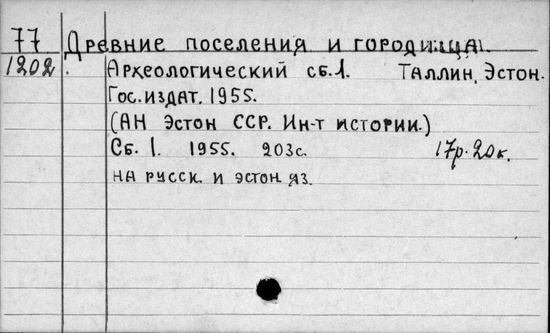 77 Древние поселения и городища.
1202. Археологический сб.1. Таллин, Эстон.
Гос.издат. 1955.
(АН Эстон ССР. Ин-т истории.)
Сб. 1. 1955. 203с. 17р.20к.
на русск. и эстон яз.